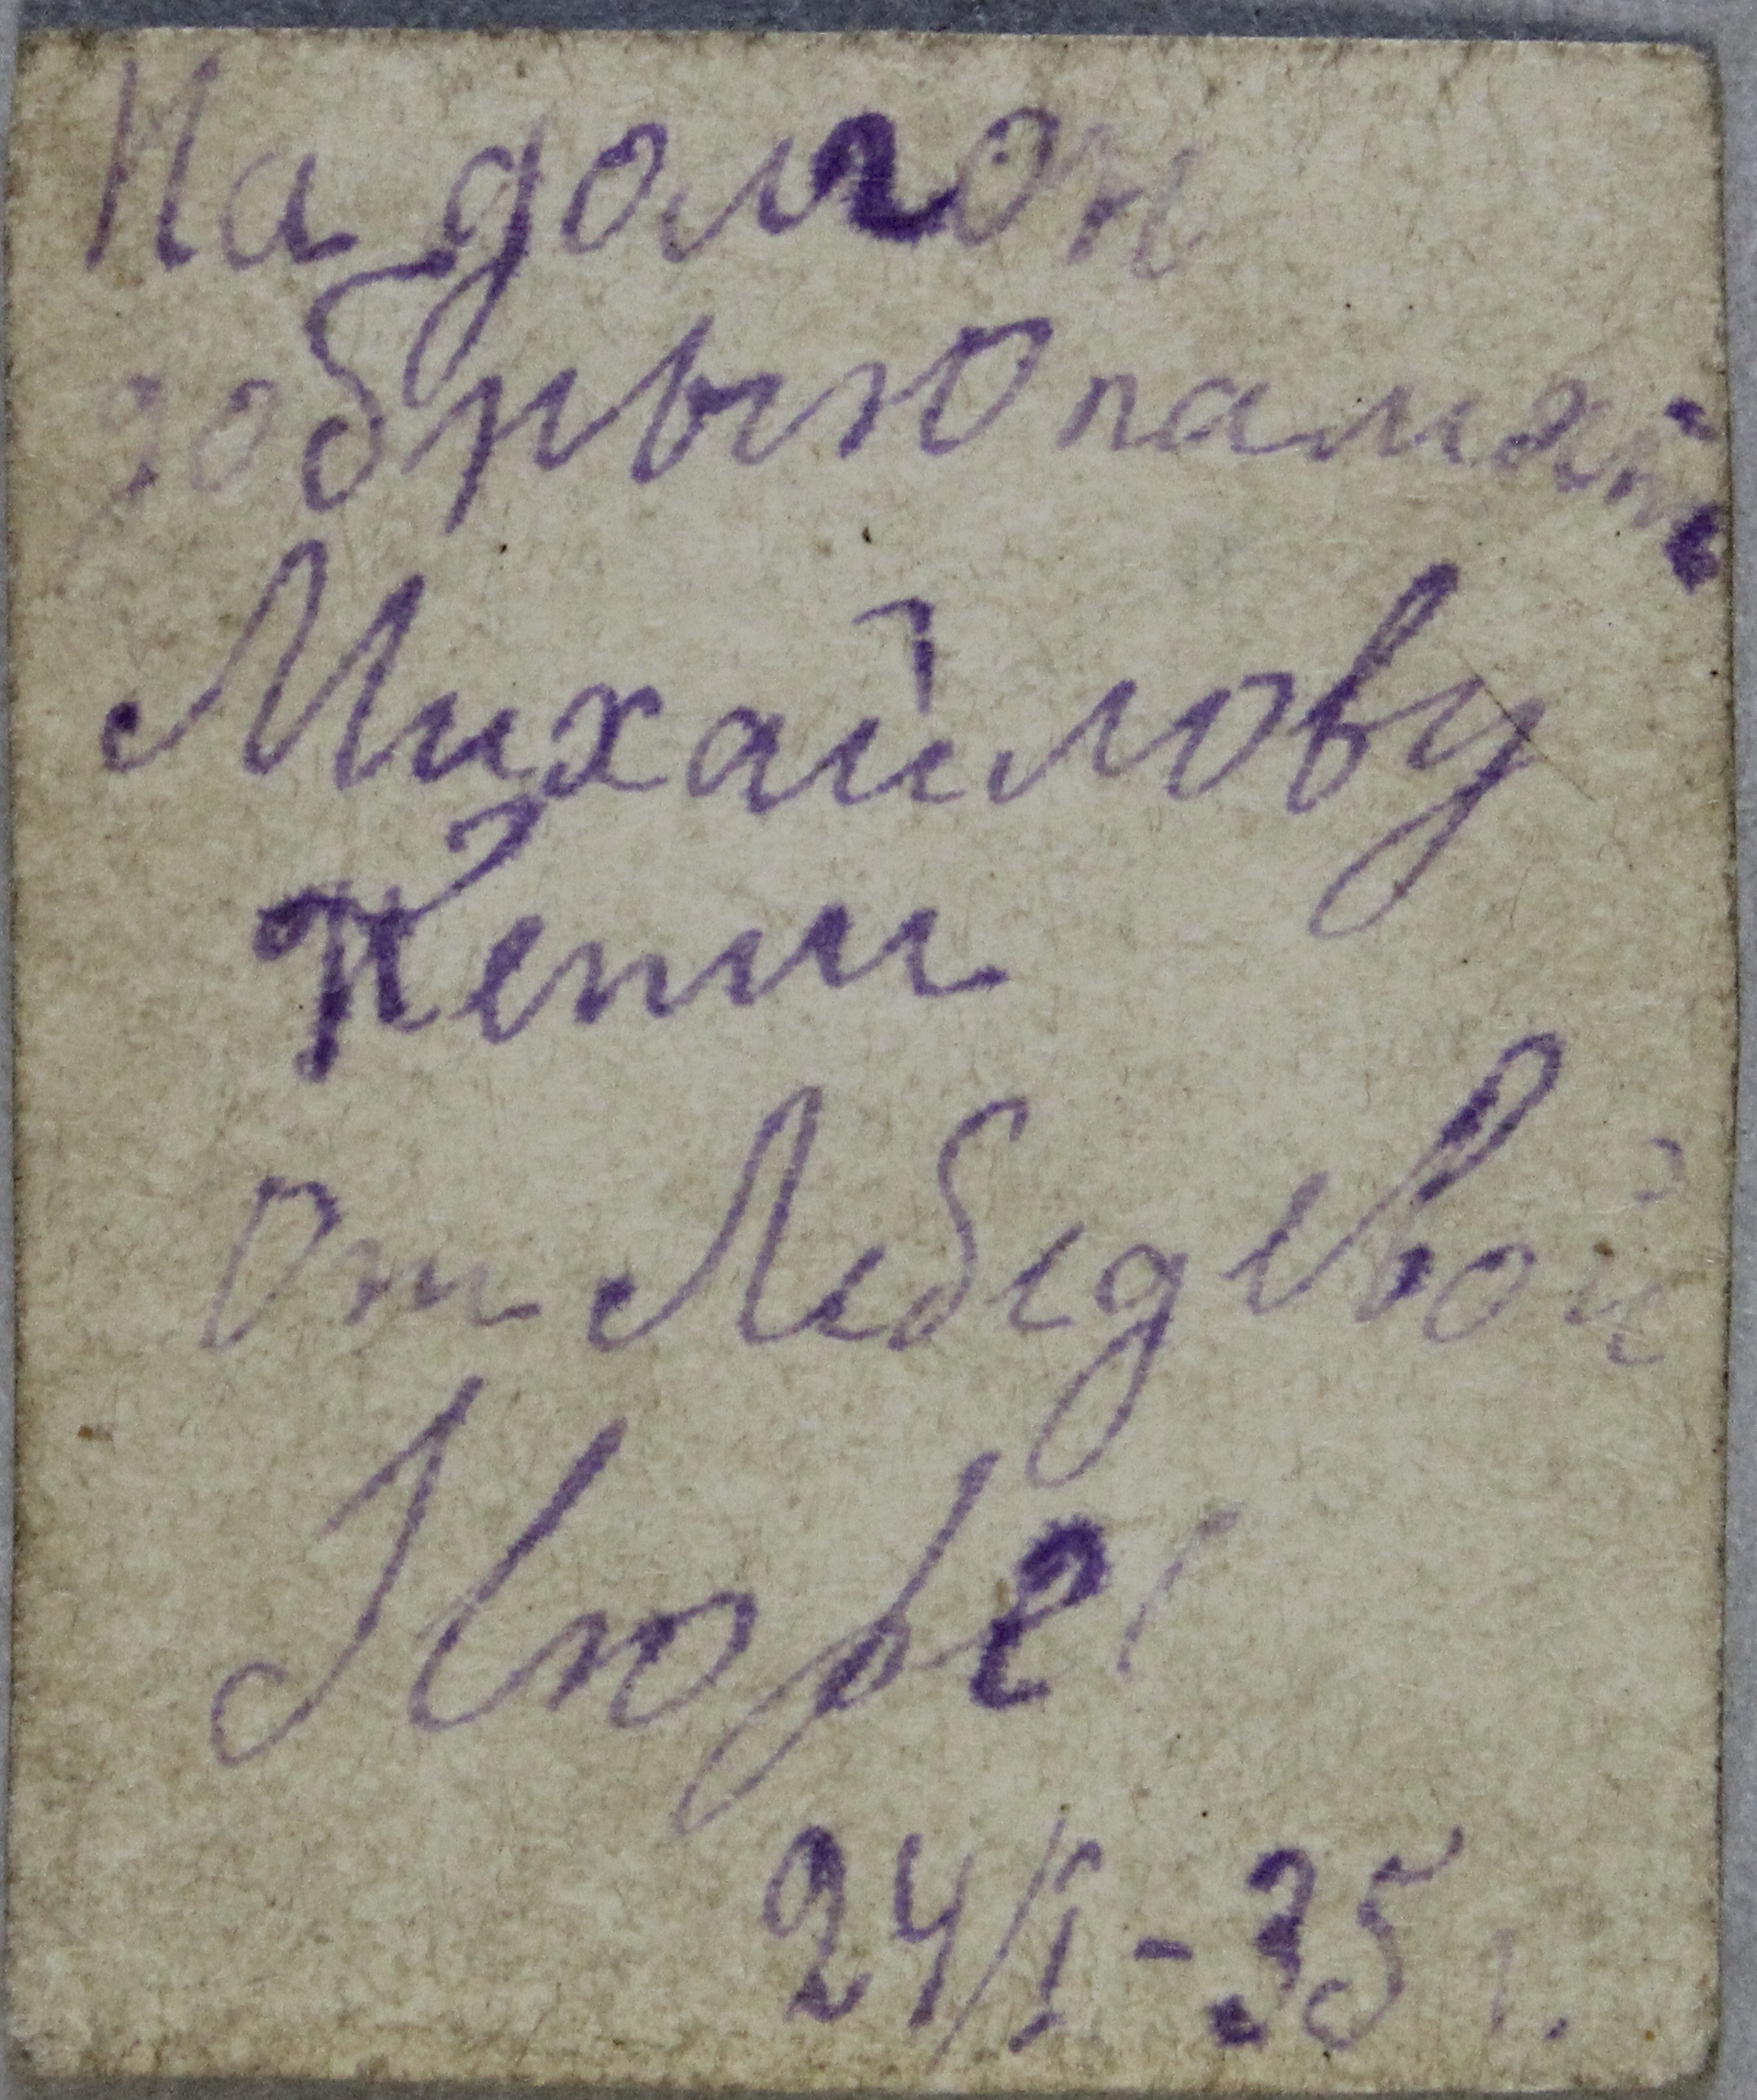 На долгою
добрыю память
Михайлову
Кепи
От Лебедевой
Нюры
24/I-35 г.